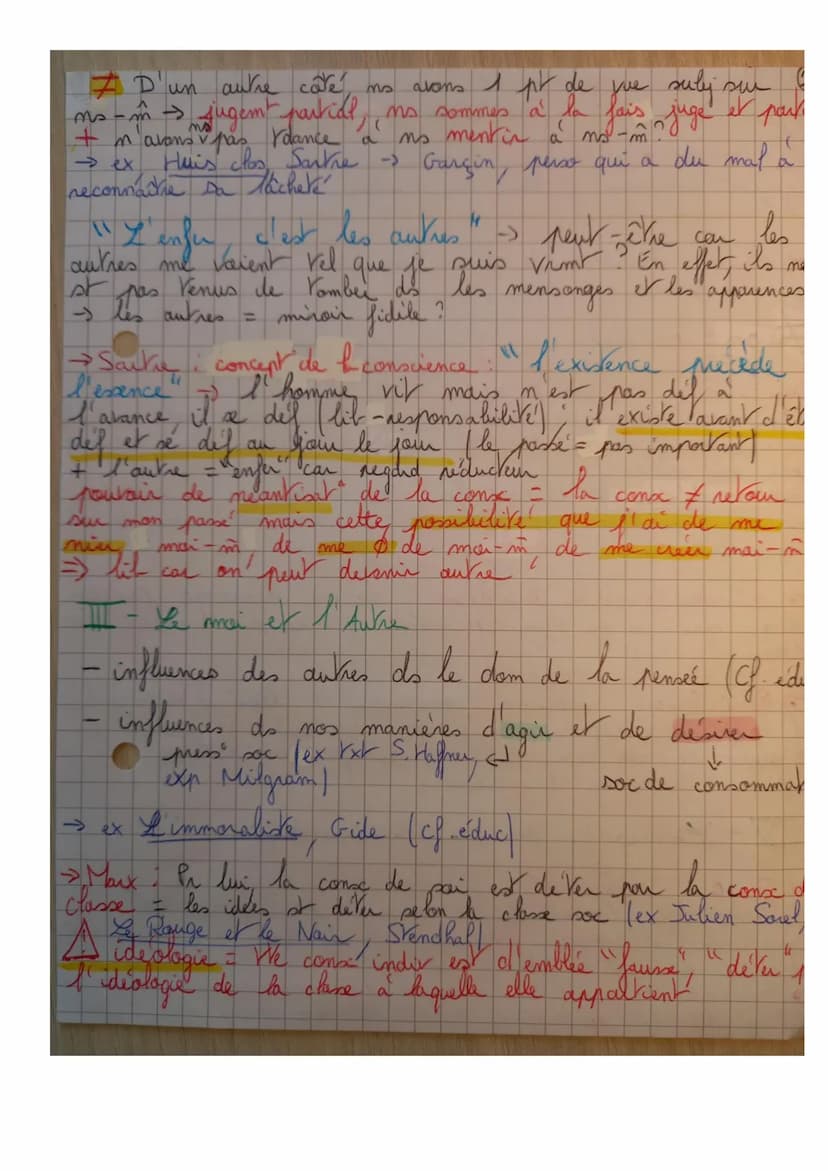 ≠ D'un autre côté, ns avons 1 pt de vue subj sur
ns-m̂ → jugemt partial, ns sommes à la fois juge et part
+ n'avons ns pas tdance à ns mentir à ns-m̂ ?
→ ex Huis clos, Sartre → Garçin, perso qui a du mal à
reconnaître sa lâcheté
"L'enfer, c'est les autres" → peut-être car les
autres me voient tel que je suis vrmt ? En effet, ils ne
st pas tenus de tomber ds les mensonges et les apparences
→ les autres = miroir fidèle ?
→ Sartre : concept de l conscience : "l'existence précède
l'essence" → l'homme vit mais n'est pas déf à
l'avance, il se déf (lib-responsabilité) : il existe avant d'êt
déf et se déf au jour le jour (le passé = pas important)
+ l'autre = "enfer" car regard réducteur
pouvoir de néantisat° de la consc = la consc ≠ retour
sur mon passé mais cette possibilité que j'ai de me
nier moi-m̂, de me ∅ de moi-m̂, de me créer moi-m̂
⇒ lib car on peut devenir autre
III - Le moi et l'Autre
- influences des autres ds le dom de la pensée (Cf. édu
- influences ds nos manières d'agir et de désirer
press° soc (ex txt S. Haffner, ↵ ↓
exp Milgram) soc de consommat
→ ex L'immoraliste, Gide (cf. éduc)
→ Marx : Pr lui, la consc de soi est déter par la consc d
classe = les idées st déter selon la classe soc (ex Julien Sorel,
Le Rouge et le Noir, Stendhal)
⚠ idéologie = tte consc indiv est d'emblée "fausse", "déter" p
l'idéologie de la classe à laquelle elle appartient